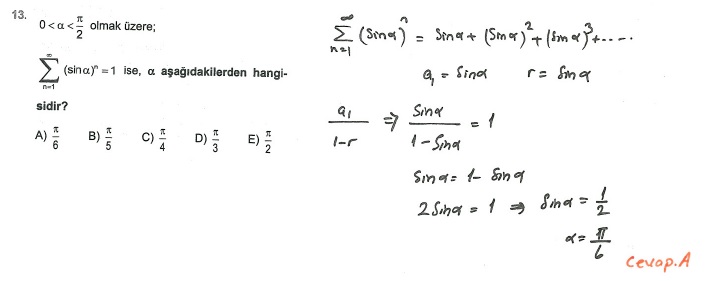 13.
0 < α < π/2 olmak üzere;
∞
∑ (sinα)ⁿ = 1 ise, α aşağıdakilerden hangi-
n=1
sidir?
A) π/6 B) π/5 C) π/4 D) π/3 E) π/2
∞
∑ (Sinα)ⁿ = Sinα + (Sinα)² + (Sinα)³ + .....
n=1
a₁ = Sinα r = Sinα
a₁/1-r ⇒ Sinα/1-Sinα = 1
Sinα = 1 - Sinα
2Sinα = 1 ⇒ Sinα = 1/2
α = π/6
Cevap.A